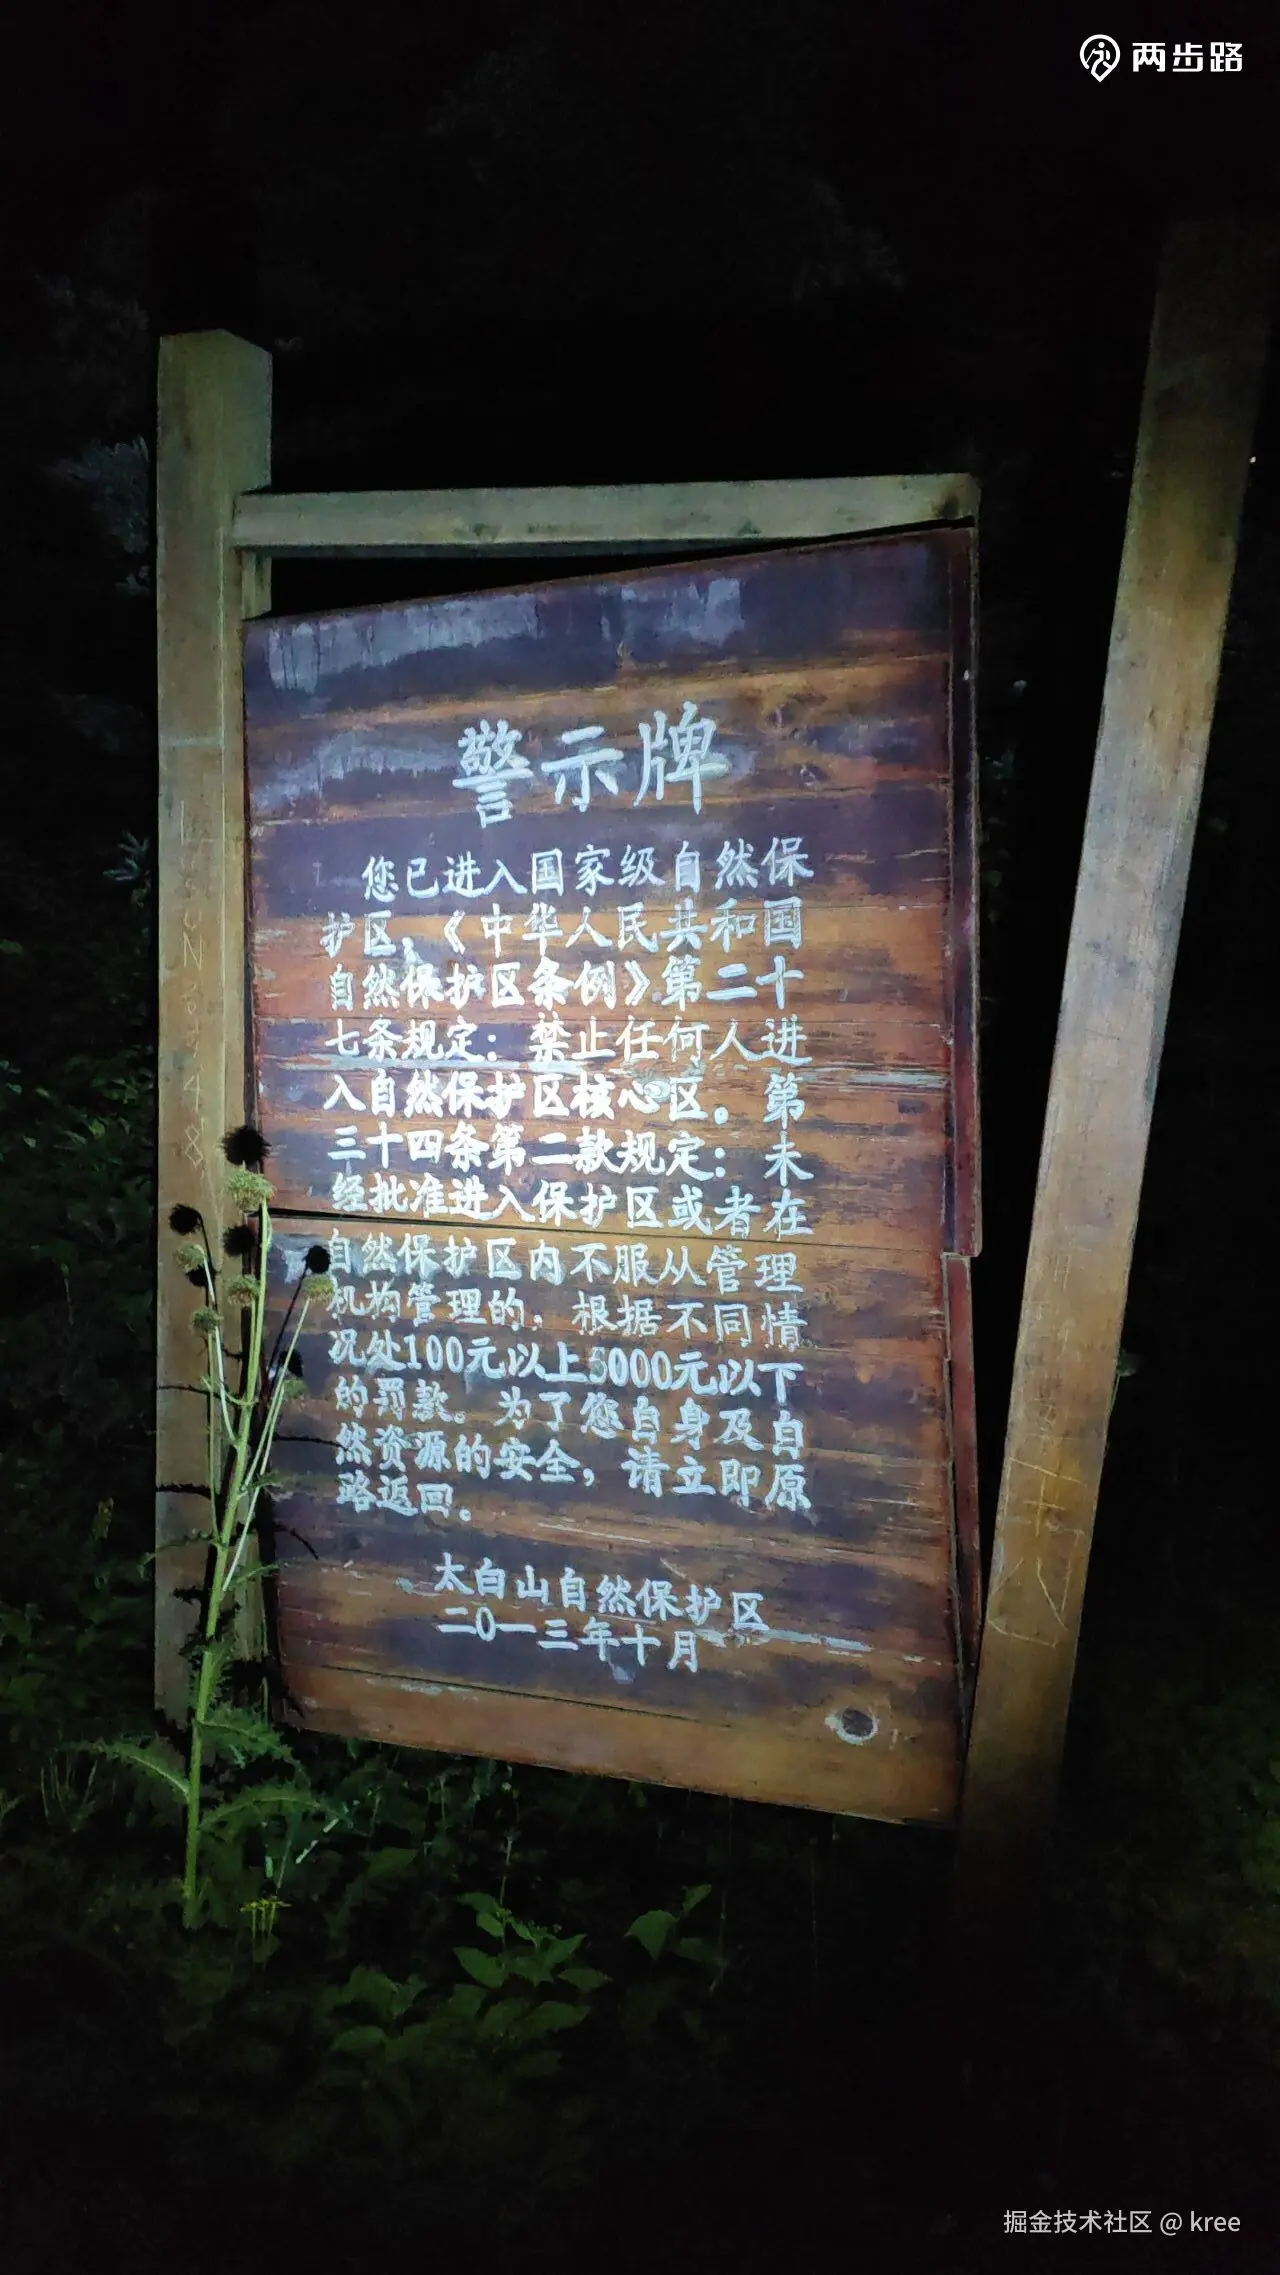 两步路
警示牌
您已进入国家级自然保
护区，《中华人民共和国
自然保护区条例》第二十
七条规定：禁止任何人进
入自然保护区核心区。第
三十四条第二款规定：未
经批准进入保护区或者在
自然保护区内不服从管理
机构管理的，根据不同情
况处100元以上5000元以下
的罚款。为了您自身及自
然资源的安全，请立即原
路返回。
太白山自然保护区
二0一三年十月
掘金技术社区 @ kree